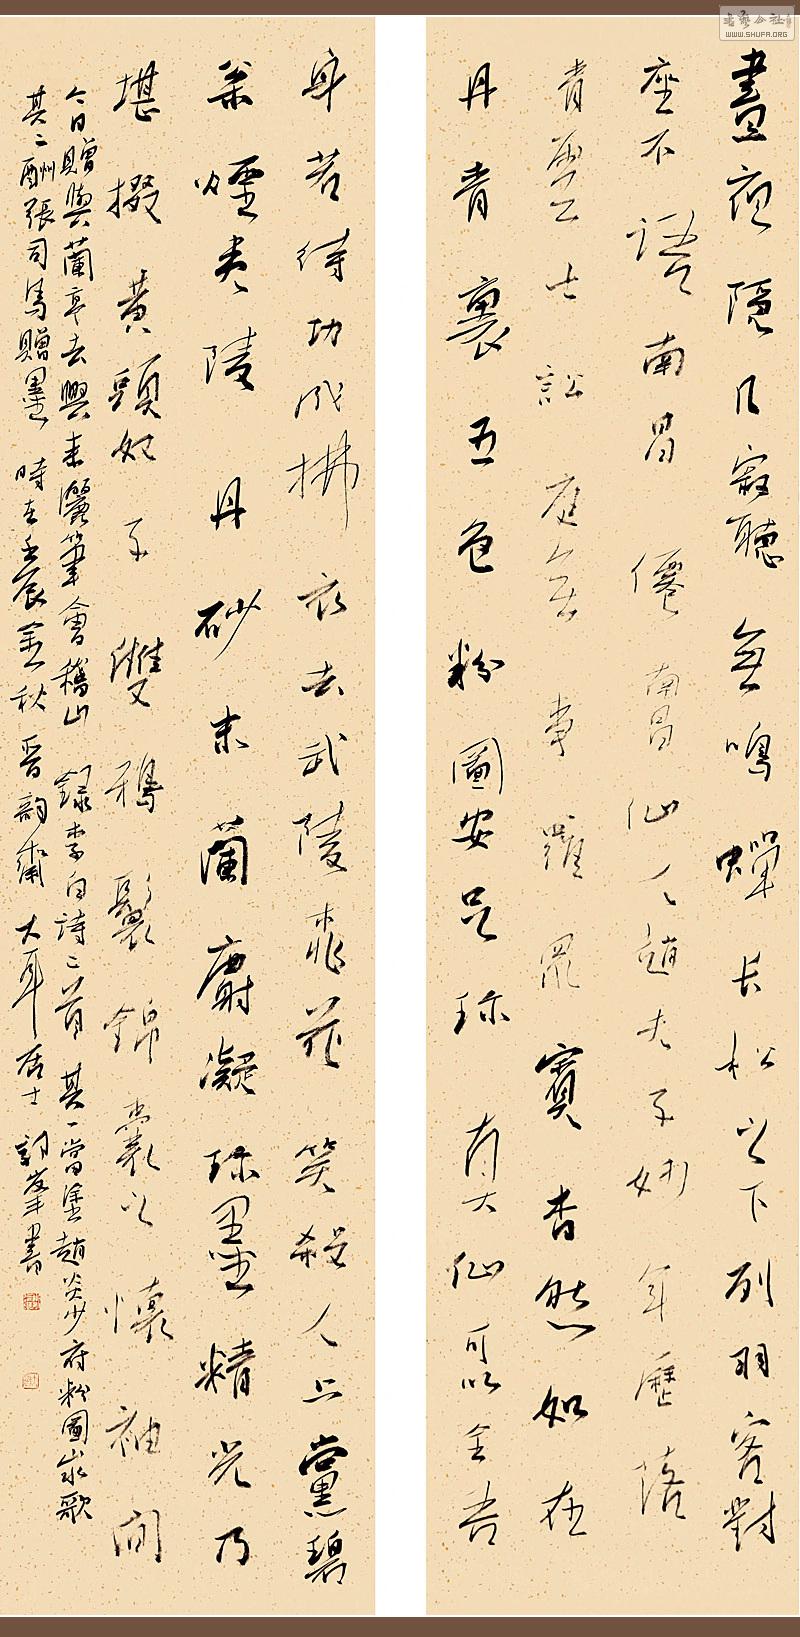 晝夜隱几寂聽無鳴蟬長松之下列羽客對
座不語南昌僊南昌仙人趙夫子妙年歷落
青雲士訟庭無事羅眾賓杳然如在
丹青裏五色粉圖安足珍真仙可以全吾
身若待功成拂衣去武陵桃花笑殺人上黨碧
枀煙夷陵丹砂末蘭麝凝珍墨精光乃
堪掇黃頭奴子雙鴉鬟錦囊之懷袖間
今日贈與蘭亭去興來灑筆會稽山 錄李白詩二首 其一當塗趙炎少府粉圖山水歌
其二酬張司馬贈墨 時在壬辰金秋 晉韵齋 大耳居士 峯書
WWW.SHUFA.ORG